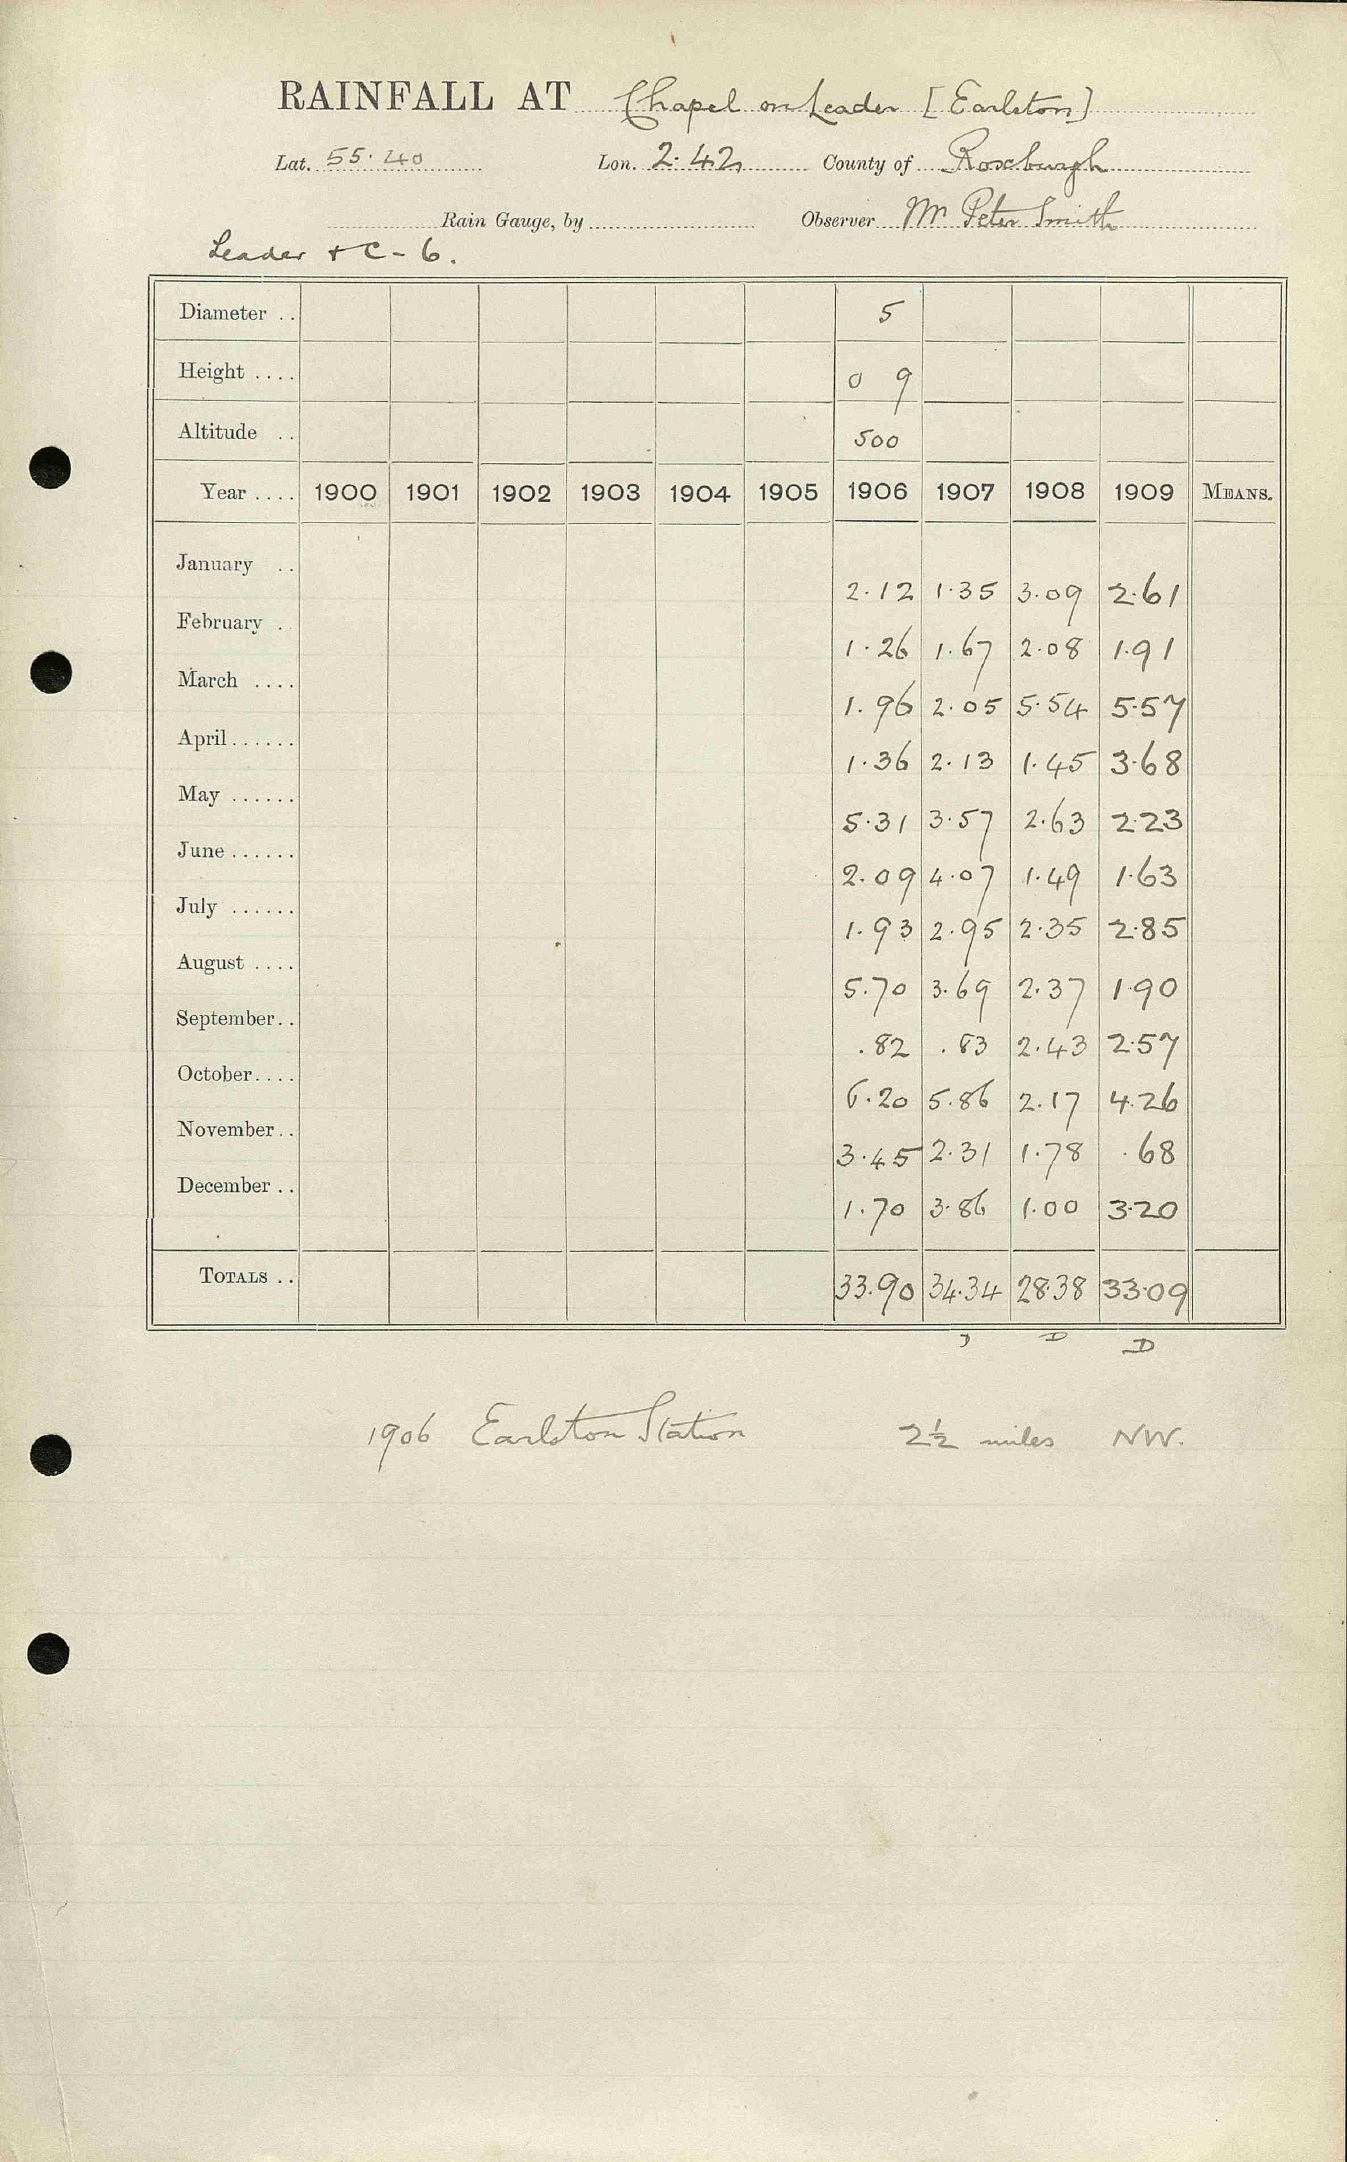 RAINFALL AT Chapel on Leader [Earlston]
Lat. 55.40 Lon. 2.42 County of Roxburgh
Rain Gauge, by Observer Mr Peter Smith
Leader + C - 6.
Diameter .. 5
Height .... 0 9
Altitude .. 500
Year .... 1900 1901 1902 1903 1904 1905 1906 1907 1908 1909 MEANS.
January .. 2.12 1.35 3.09 2.61
February . 1.26 1.67 2.08 1.91
March .... 1.96 2.05 5.54 5.57
April ...... 1.36 2.13 1.45 3.68
May ...... 5.31 3.57 2.63 2.23
June ...... 2.09 4.07 1.49 1.63
July ...... 1.93 2.95 2.35 2.85
August .... 5.70 3.69 2.37 1.90
September .. .82 .83 2.43 2.57
October .... 6.20 5.86 2.17 4.26
November .. 3.45 2.31 1.78 .68
December .. 1.70 3.86 1.00 3.20
TOTALS .. 33.90 34.34 28.38 33.09
D D
1906 Earlston Station 2½ miles NW.